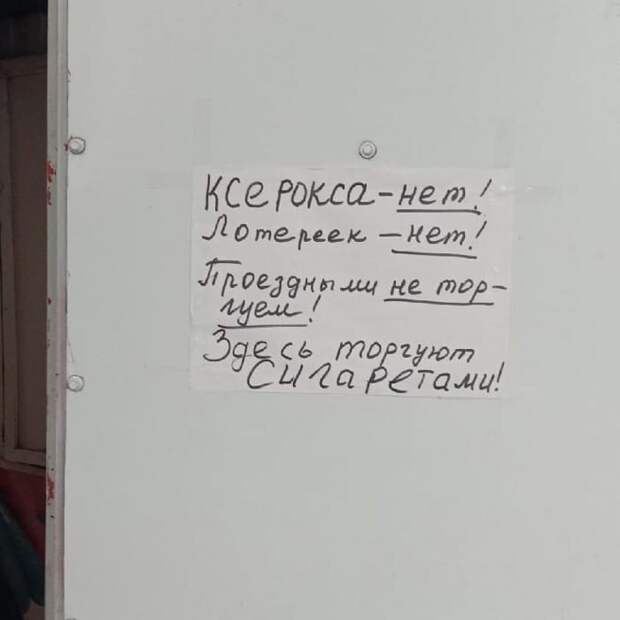 Ксерокса - нет!
Лотереек - нет!
Проездными не тор-
гуем!
Здесь торгуют
Сигаретами!